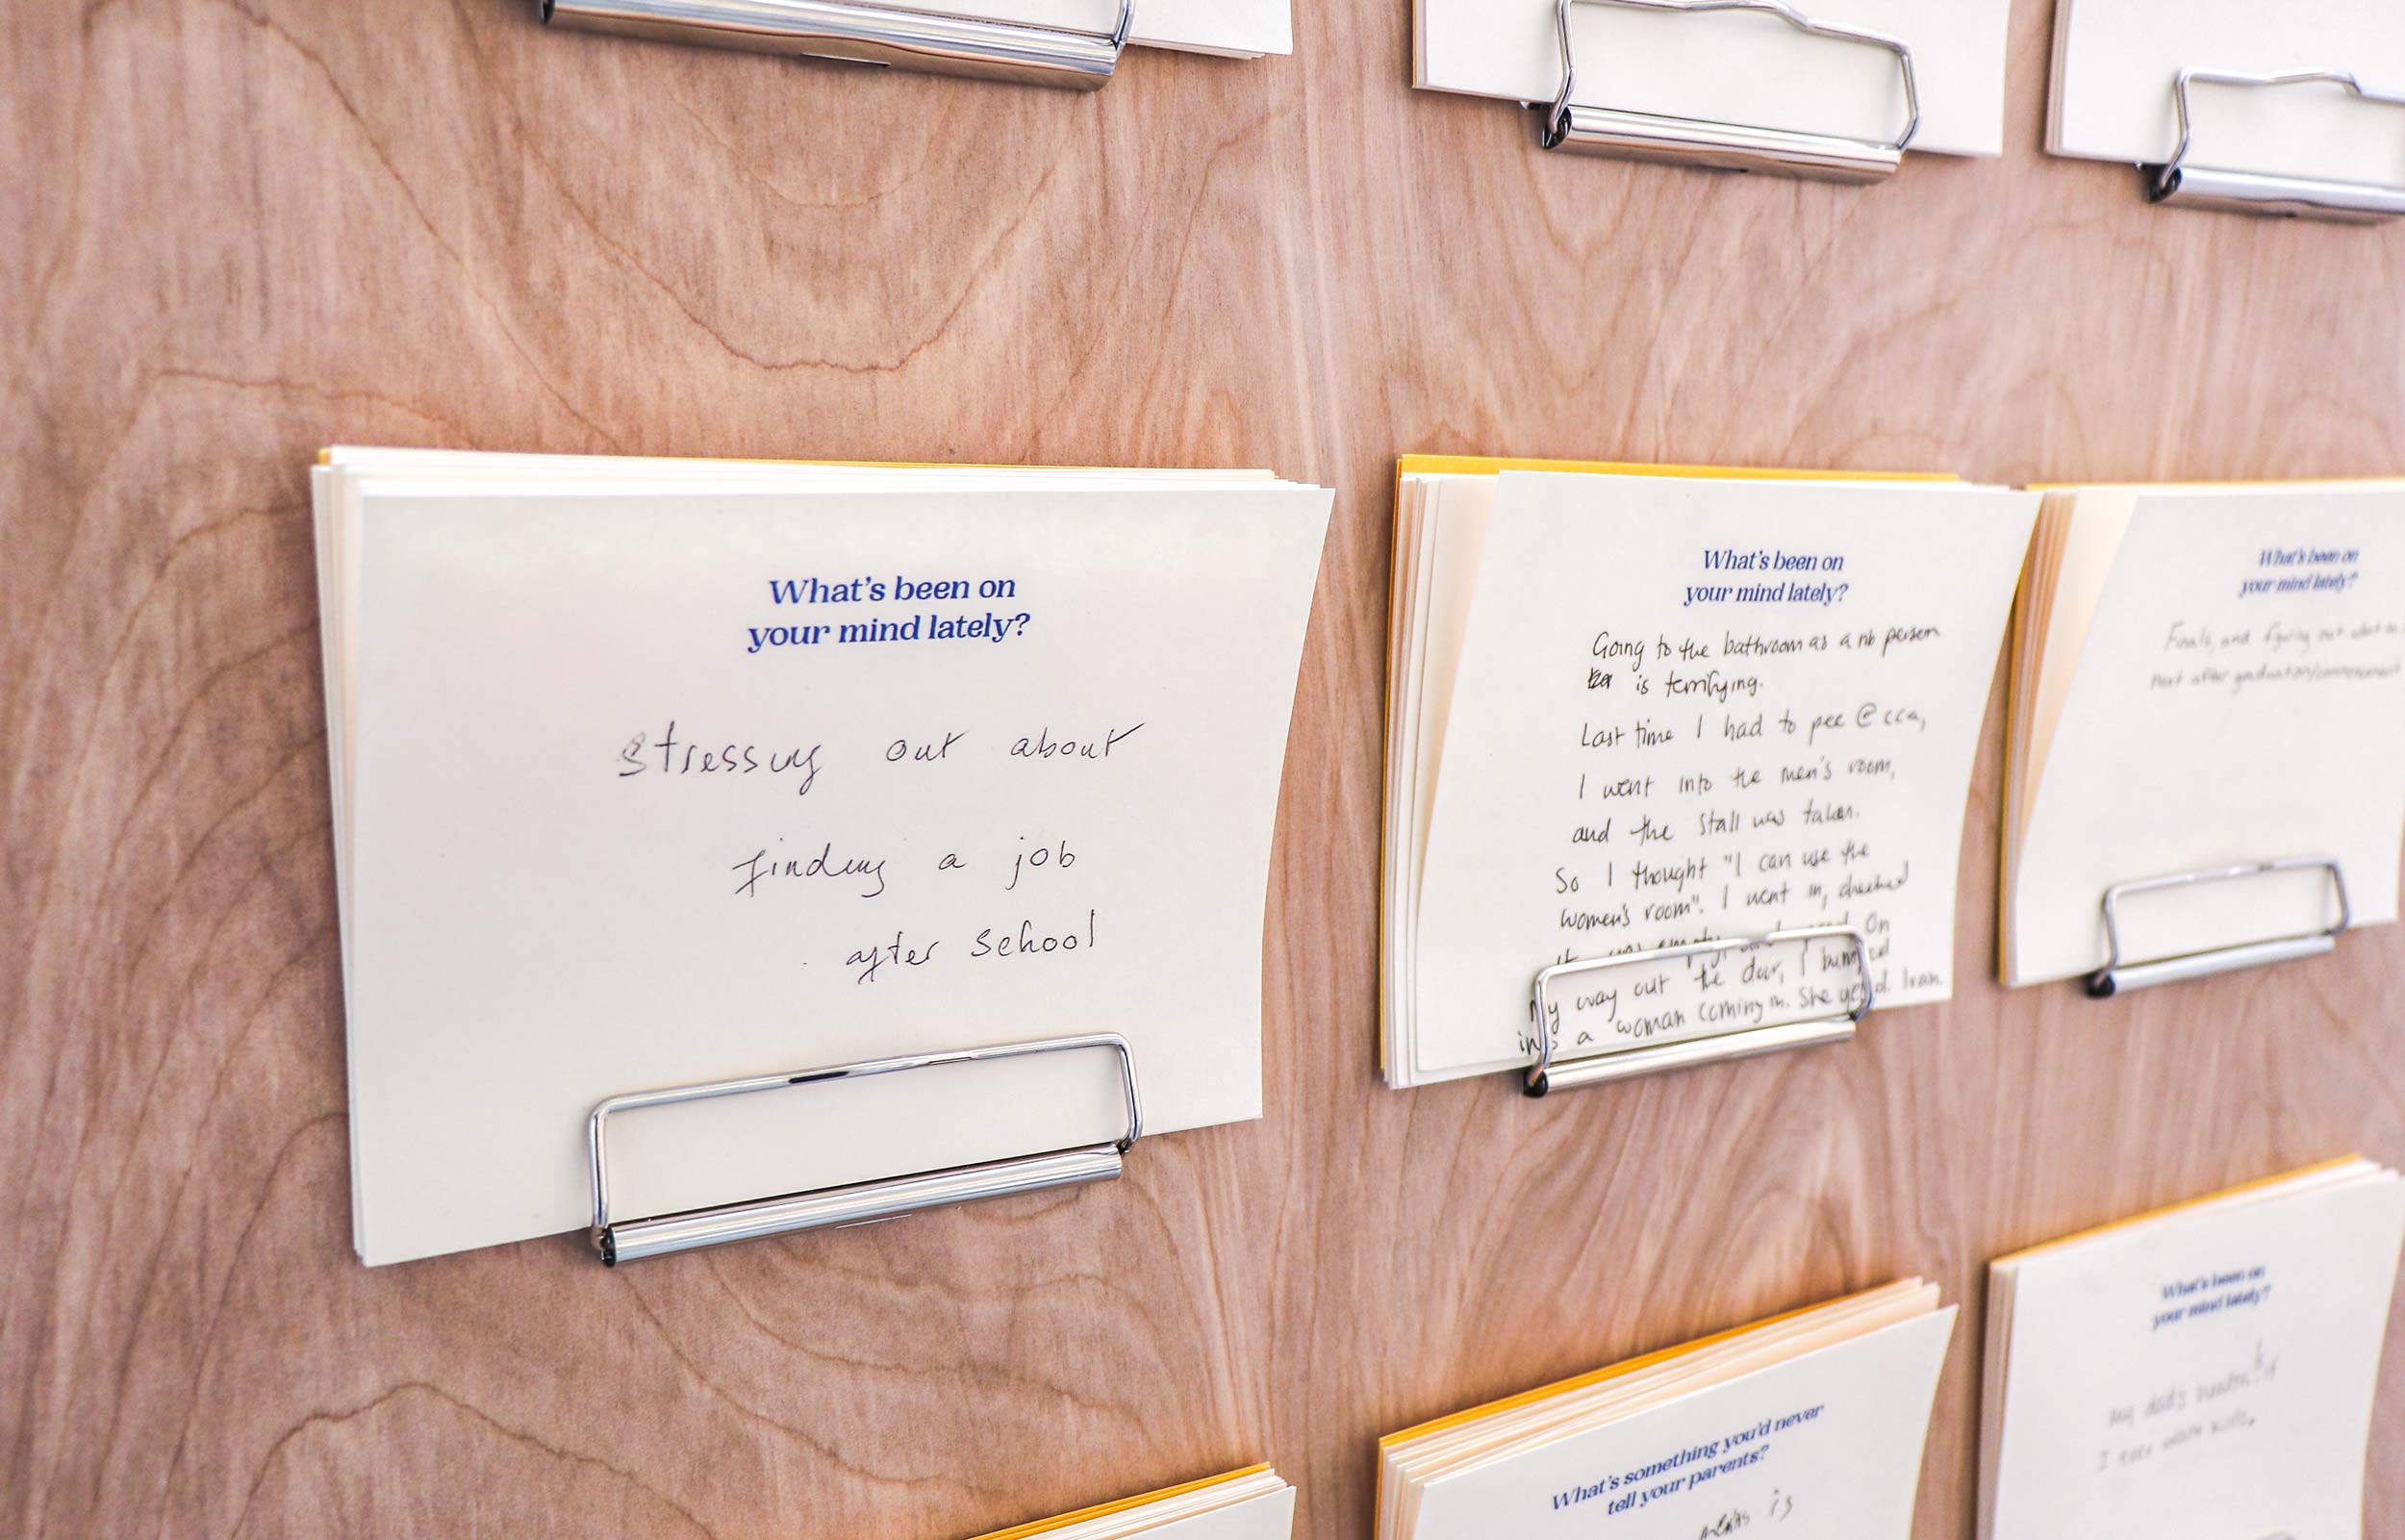 What's been on
your mind lately?
stressing out about
finding a job
after school
What's been on
your mind lately?
Going to the bathroom as a nb person
is terrifying.
Last time I had to pee @ cca,
I went into the men's room,
and the stall was taken.
So I thought "I can use the
women's room". I went in, checked
it was empty, and peed. On
my way out the door, I bumped
into a woman coming in. She yelled.
What's been on
your mind lately?
Finals, and figuring out what
next after graduation/commencement
What's something you'd never
tell your parents?
is
What's been on
your mind lately?
My dad's health. If
I ever